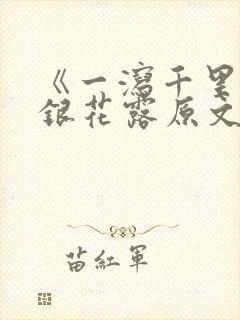 《一瀉千里
銀花露原文
苗紅軍